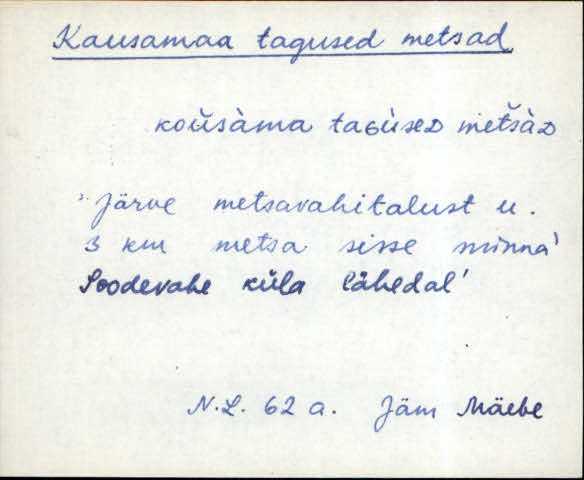 Kausamaa tagused metsad
koüsàma taɢüseᴅ met́sàᴅ
"Järve metsavahitalust u.
3 km metsa sisse minna'
Soodevahe küla lähedal'
N.L. 62 a. Jäm Mäebe